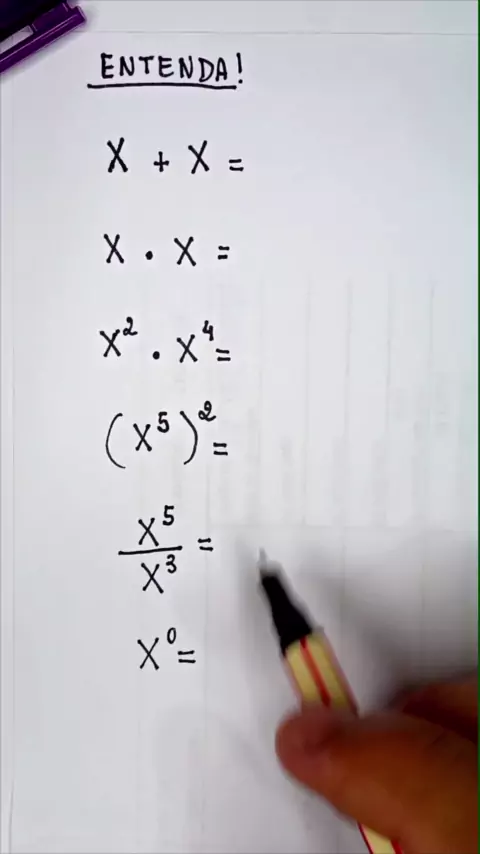 ENTENDA!
X + X =
X . X =
X² . X⁴ =
(X⁵)² =
X⁵
X³ =
X⁰ =